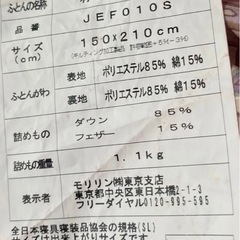 ふとんの名称
品番 JEF010S
サイズ(cm) 150×210cm
(キルティング加工製品 許容範囲+5%-3%)
ふとんがわ 表地 ポリエステル85% 綿15%
裏地 ポリエステル85% 綿15%
詰めもの ダウン 85%
フェザー 15%
詰めもの重量 1.1kg
表示者 モリリン㈱東京支店
東京都中央区東日本橋2-1-3
フリーダイヤル0120-995-595
全日本寝具寝装品協会の規格(SL)
サイズは出来上がりサイズで